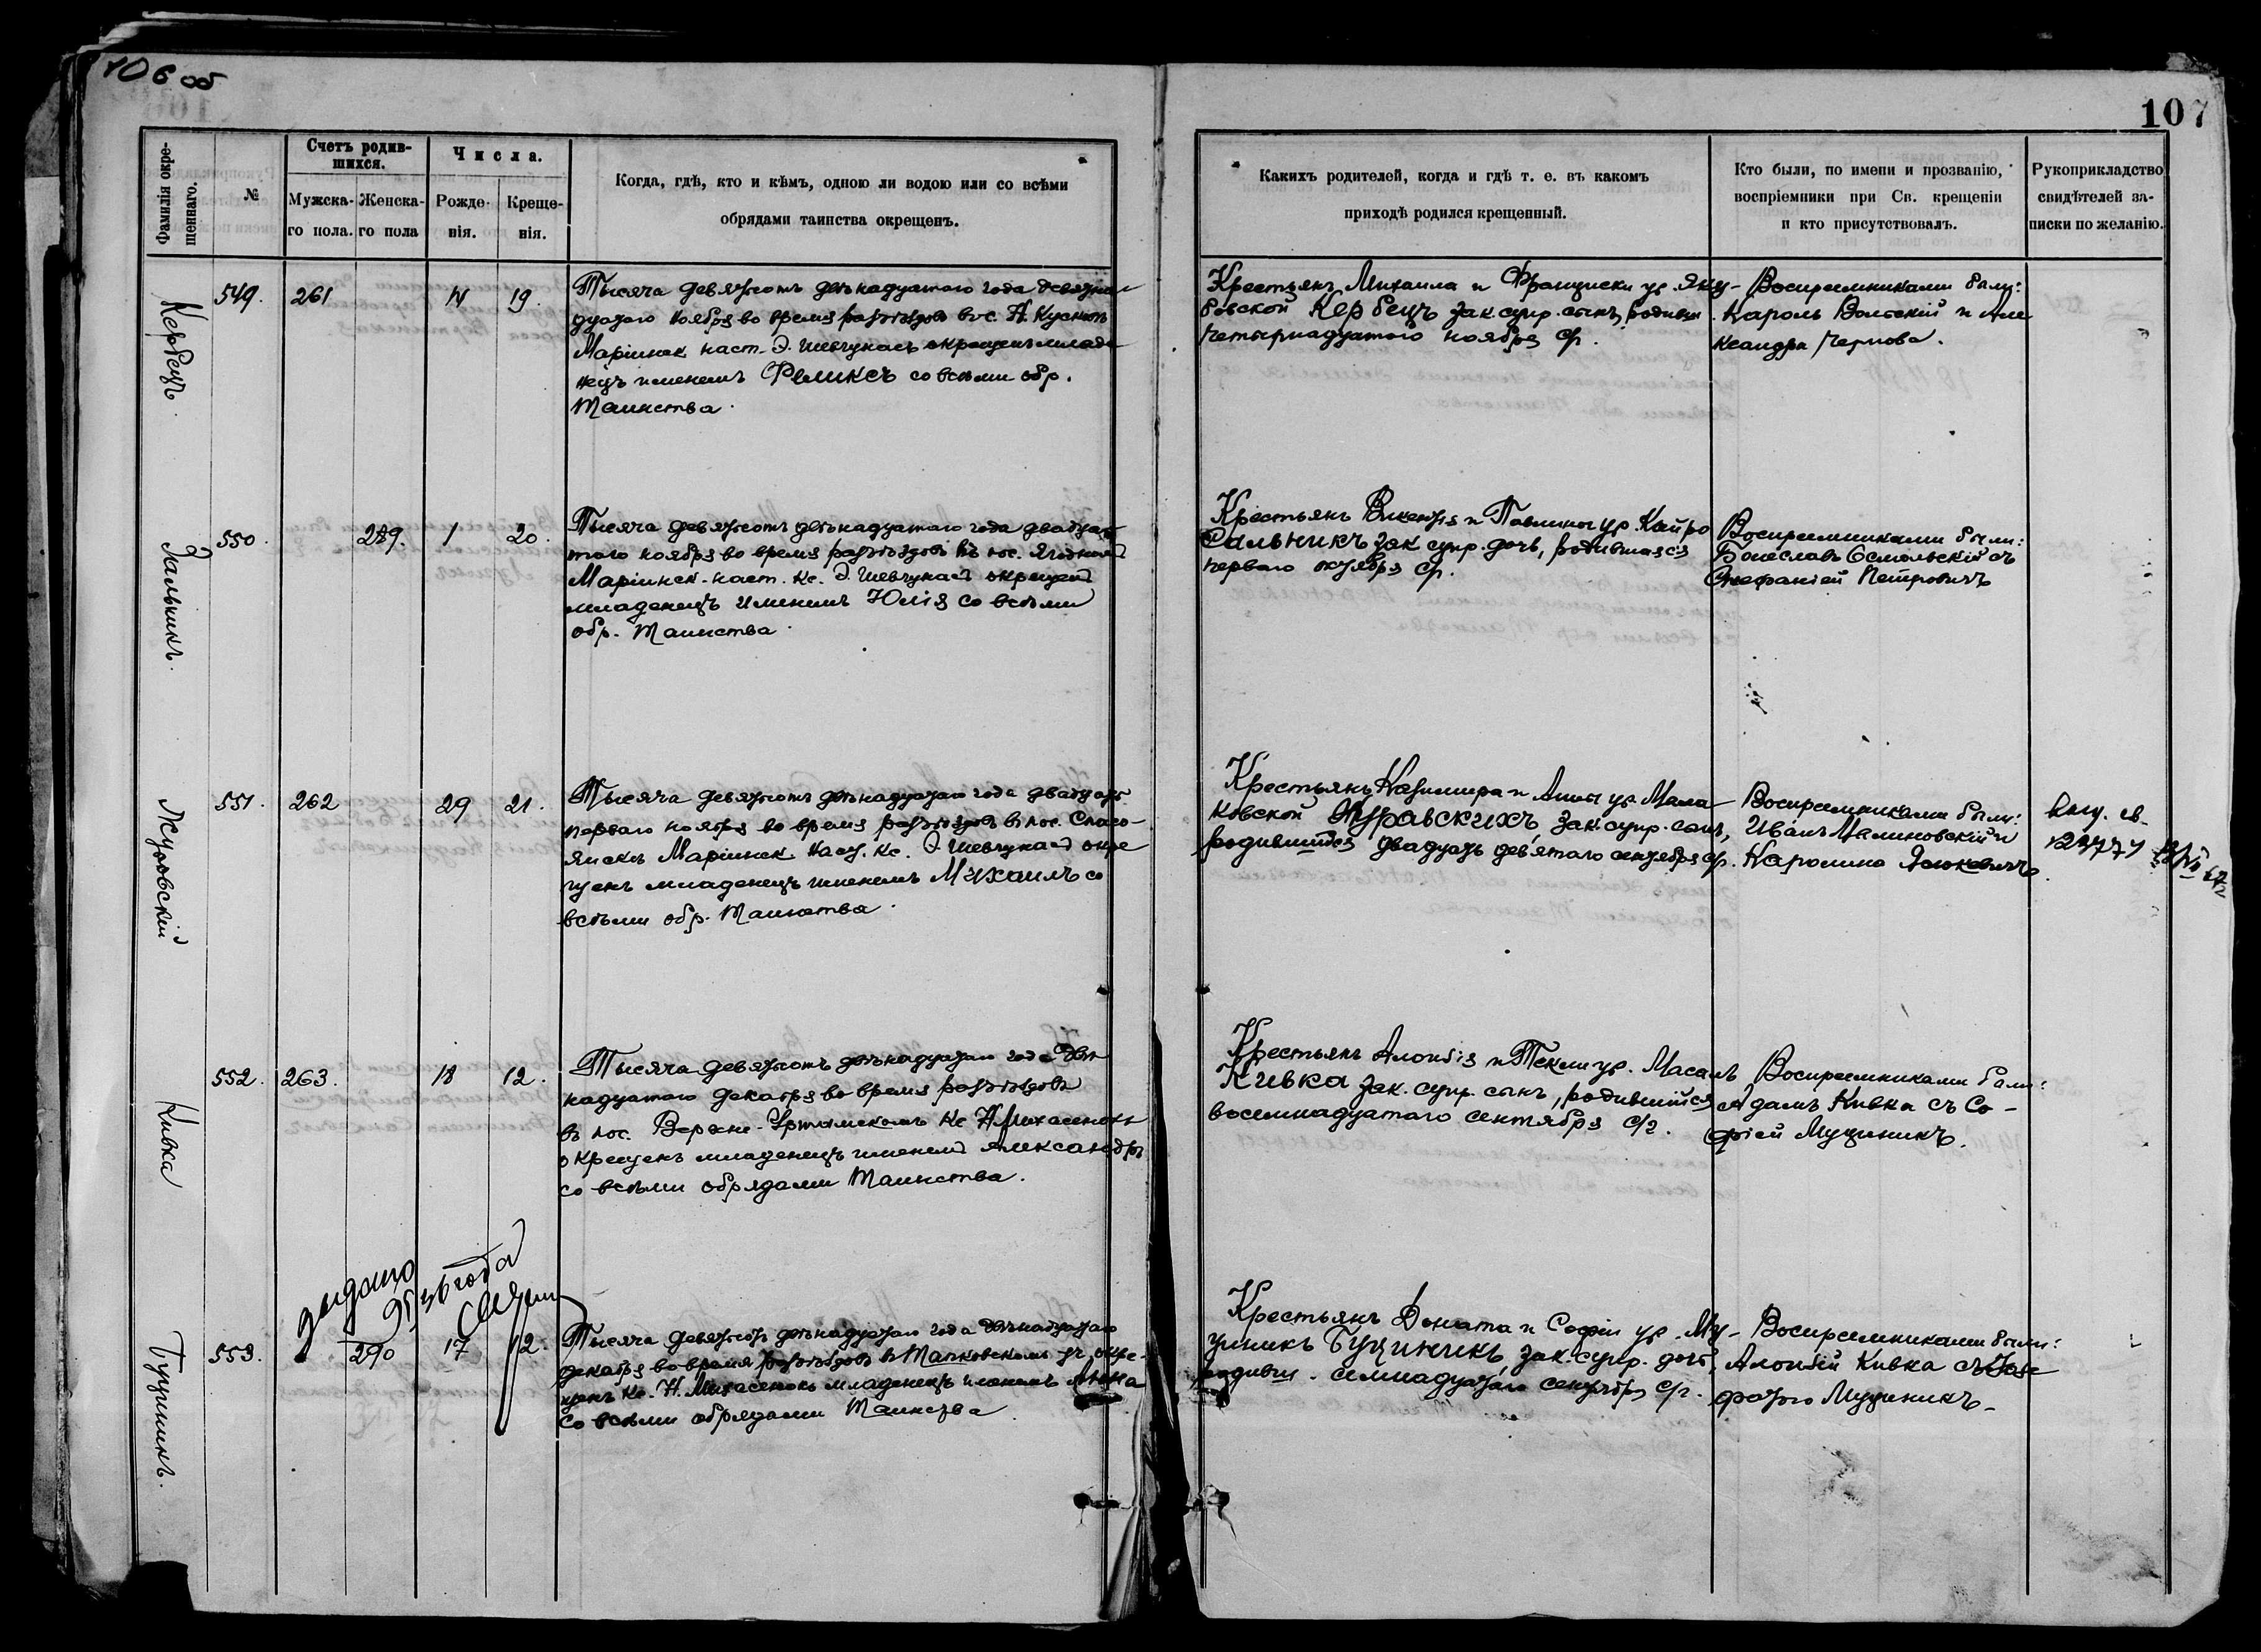 106 об
107
Фамилія окре-
щеннаго.
№
Счетъ родив-
шихся.
Мужска-
го пола.
Женска-
го пола
Числа.
Рожде-
нія.
Креще-
нія.
Когда, гдѣ, кто и кѣмъ, одною ли водою или со всѣми
обрядами таинства окрещенъ.
Каких­ъ родителей, когда и гдѣ т. е. въ какомъ
приходѣ родился крещенный.
Кто были, по имени и прозванію,
воспріемники при Св. крещеніи
и кто присутствовалъ.
Рукоприкладство
свидѣтелей за-
писки по желанію.
Кербецъ.
549. 261 14 19.
Тысяча девятьсотъ двѣнадцатаго года девятна-
дцатаго ноября во время разъѣздовъ въ с.
Маріинск. наст. Э. Шевчукасъ окрещенъ младе-
нецъ именемъ Феликсъ со всѣми обр.
Таинства.
Крестьянъ Михаила и Франциски ур. Яку-
бовской Кербецъ зак. супр. сынъ, родивш.
четырнадцатаго ноября с/г.
Воспріемниками были:
Кароль Вольскій и Але
ксандра Чернова.
Сальникъ.
550. 289. 1 20.
Тысяча девятьсотъ двѣнадцатаго года двадца-
таго ноября во время разъѣздовъ въ пос.
Маріинск. наст. Кс. Э. Шевчукасъ окрещенъ
младенецъ именемъ Юлія со всѣми
обр. Таинства.
Крестьянъ Викентія и Павлины ур. Кайро
Сальникъ зак. супр. дочь, родившаяся
перваго октября с/г.
Воспріемниками были:
Болеславъ Осмольскій съ
Стефаніей Петровичъ
Журавскій
551. 262 29 21.
Тысяча девятьсотъ двѣнадцатаго года двадцать
перваго ноября во время разъѣздовъ въ пос. Спасо-
Яискъ Маріинск. наст. Кс. Э. Шевчукасъ окре
щенъ младенецъ именемъ Михаилъ со
всѣми обр. Таинства.
Крестьянъ Казимира и Анны ур. Мала
ховской Журавскихъ зак. супр. сынъ,
родившійся двадцать девятаго сентября с/г.
Воспріемниками были:
Иванъ Малиновскій и
Каролина
Кивка
552. 263. 18 12.
Тысяча девятьсотъ двѣнадцатаго года двѣ
надцатаго декабря во время разъѣздовъ
въ пос. Верхне-Уртамскомъ Кс. Н. Михасенокъ
окрещенъ младенецъ именемъ Александръ
со всѣми обрядами Таинства.
Крестьянъ Алоизія и Теклии ур. Масаль
Кивка зак. супр. сынъ, родившійся
восемнадцатаго сентября с/г.
Воспріемниками были:
Адамъ Кивка съ Со-
фіей Муциникъ.
Буциникъ.
553. 290 17 12.
Тысяча девятьсотъ двѣнадцатаго года двѣнадцатаго
декабря во время разъѣздовъ въ уч. окре-
щенъ Кс. Н. Михасенокъ младенецъ именемъ Анна
со всѣми обрядами Таинства
Крестьянъ Доната и Софіи ур. Му-
циникъ Буциникъ, зак. супр. дочь,
родивш. семнадцатаго сентября с/г.
Воспріемниками были:
Алоизій Кивка съ
Муциникъ.